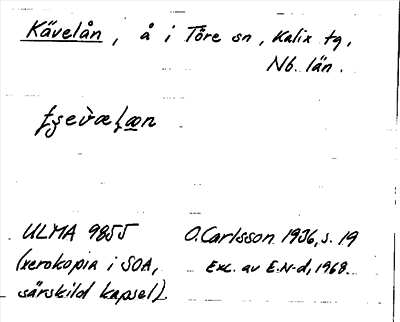 Kävelån, å i Töre sn, Kalix tg,
Nb. län.
ULMA 9855
(xerokopia i SOA,
särskild kapsel)
O. Carlsson 1936, s. 19
Exc. av E.N-d, 1968